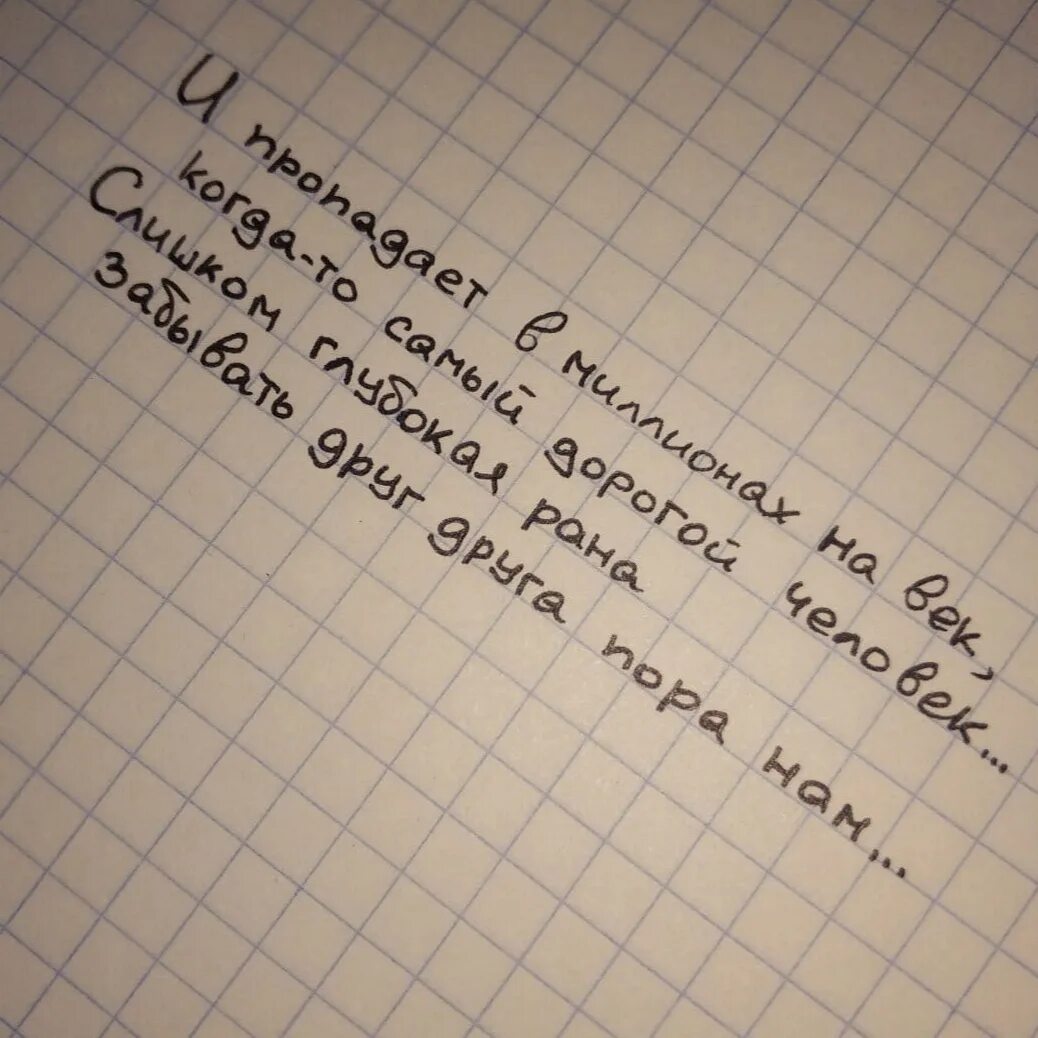 И пропадает в миллионах на век,
когда-то самый дорогой человек...
Слишком глубокая рана
Забывать друг друга пора нам...